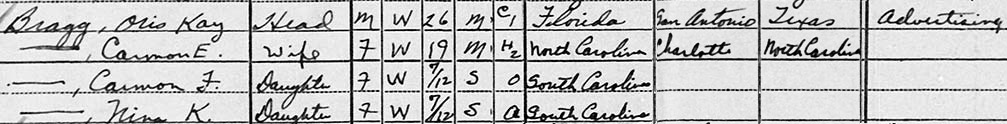 Bragg, Otis Kay Head M W 26 M C1 Florida San Antonio Texas Advertising
——, Carmon E. Wife F W 19 M H2 North Carolina Charlotte North Carolina
——, Carmon F. Daughter F W 7/12 S 0 South Carolina
——, Nina K. Daughter F W 7/12 S 0 South Carolina